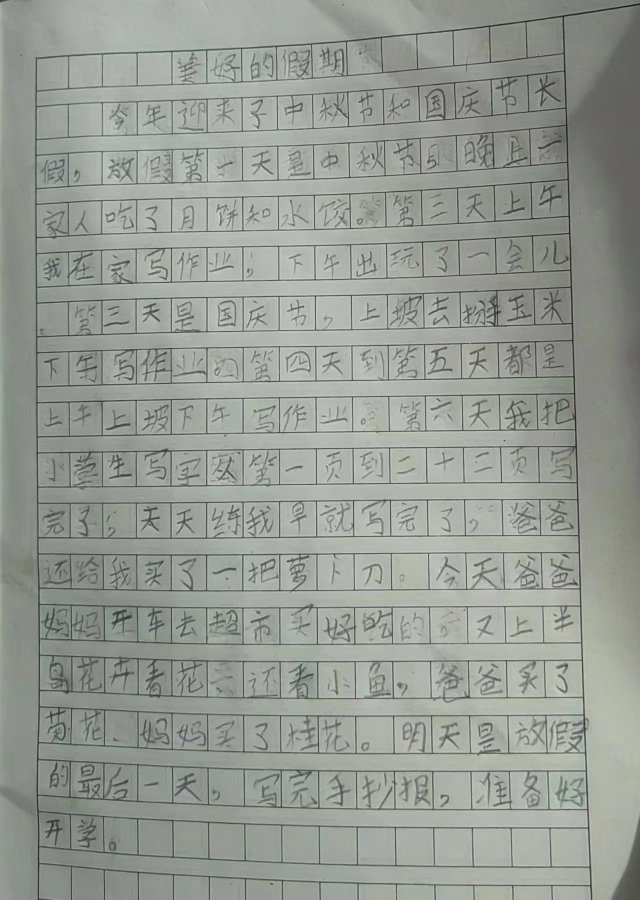 美好的假期
今年迎来了中秋节和国庆节长
假，放假第一天是中秋节，晚上一
家人吃了月饼和水饺。第三天上午
我在家写作业，下午出玩了一会儿
。第三天是国庆节，上坡去掰玉米
下午写作业。第四天到第五天都是
上午上坡下午写作业。第六天我把
小学生写字第一页到二十二页写
完了，天天练我早就写完了，爸爸
还给我买了一把萝卜刀。今天爸爸
妈妈开车去超市买好吃的。又上半
岛花卉看花还看小鱼，爸爸买了
菊花、妈妈买了桂花。明天是放假
的最后一天，写完手抄报，准备好
开学。